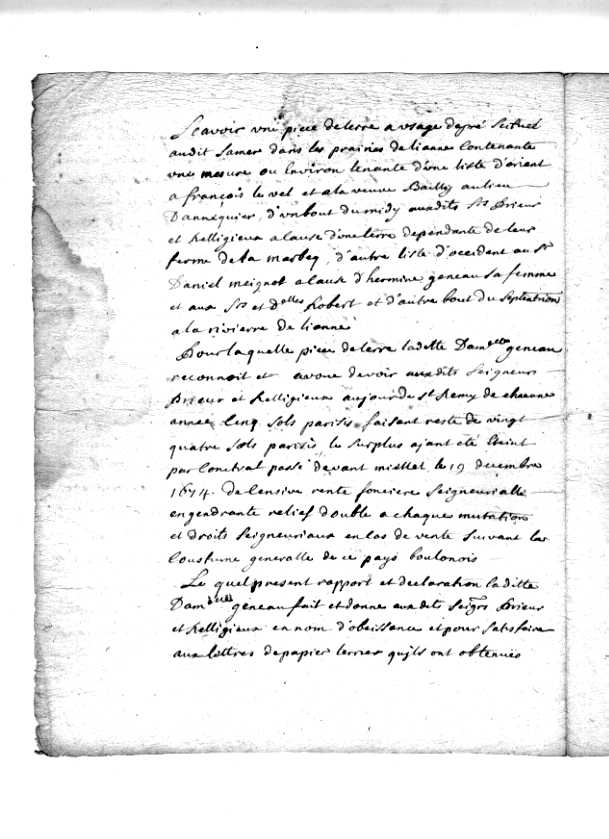 Scavoir une piece de terre a usage de pré scitué
audit Samer dans les prairies de lianne Contenante
une mesure ou Environ tenante d'une liste d'orient
a françois luvel et a la veuve Bailly au lieu
D'annequier, d'un bout du midy auxdits Srs Prieur
et Relligieux a Cause d'une terre dependante de leur
ferme de la marbeq, d'autre liste d'occident au Sr
Daniel meignot a Cause d'hermine geneau sa femme
et aux Srs et Dlles Robert et d'autre bout du Septentrion
a la rivierre de lianne
Pour laquelle piece de terre laditte Damelle geneau
reconnoit et avoue devoir auxdits Seigneurs
Prieur et Relligieux au jour de St Remy de chacune
année Cinq Sols parisis faisant reste de vingt
quatre Sols parisis le surplus ajant été Eteint
par Contrat passé devant miellet le 19 decembre
1674. de Censive rente fonciere Seigneurialle
engendrante relief double a chaque mutation
et droits Seigneuriaux en Cas de vente Suivant la
Coustume generalle de ce pays boulonois
Le quel present rapport et declaration laditte
Damelle geneau fait et donne auxdits Seigrs Prieur
et Relligieux en nom d'obeissance et pour Satisfaire
aux lettres de papier terrier qu'ils ont obtenues